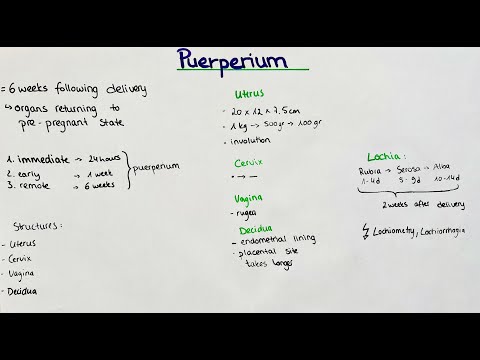 Puerperium
= 6 weeks following delivery
↳ organs returning to
pre-pregnant state
1. immediate → 24 hours
2. early → 1 week
3. remote → 6 weeks
} puerperium
Structures:
- Uterus
- Cervix
- Vagina
- Decidua
Uterus
- 20 x 12 x 7,5cm
- 1 kg → 500gr → 100 gr
- involution
Cervix
• → —
Vagina
- rugea
Decidua
- endometrial lining
- placental site
takes longer
Lochia:
Rubia → Serosa → Alba
1-4d 5-9d 10-14d
2 weeks after delivery
Lochiometry, Lochiorrhagia